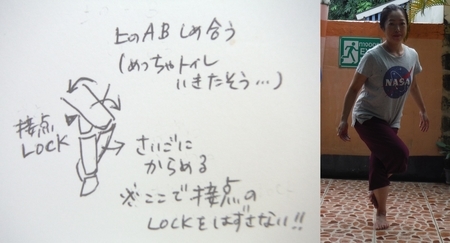 上のAB しめ合う
(めっちゃトイレ
いきたそう…)
接点
LOCK
さいごに
からめる
※ここで接点の
LOCKをはずさない!!
NASA